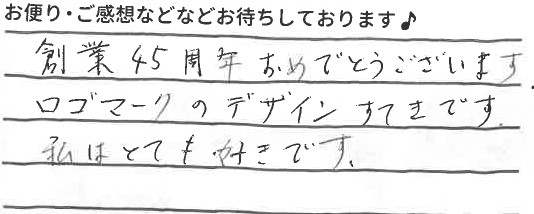 お便り・ご感想などなどお待ちしております♪
創業45周年おめでとうございます.
ロゴマークのデザインすてきです.
私はとても好きです.